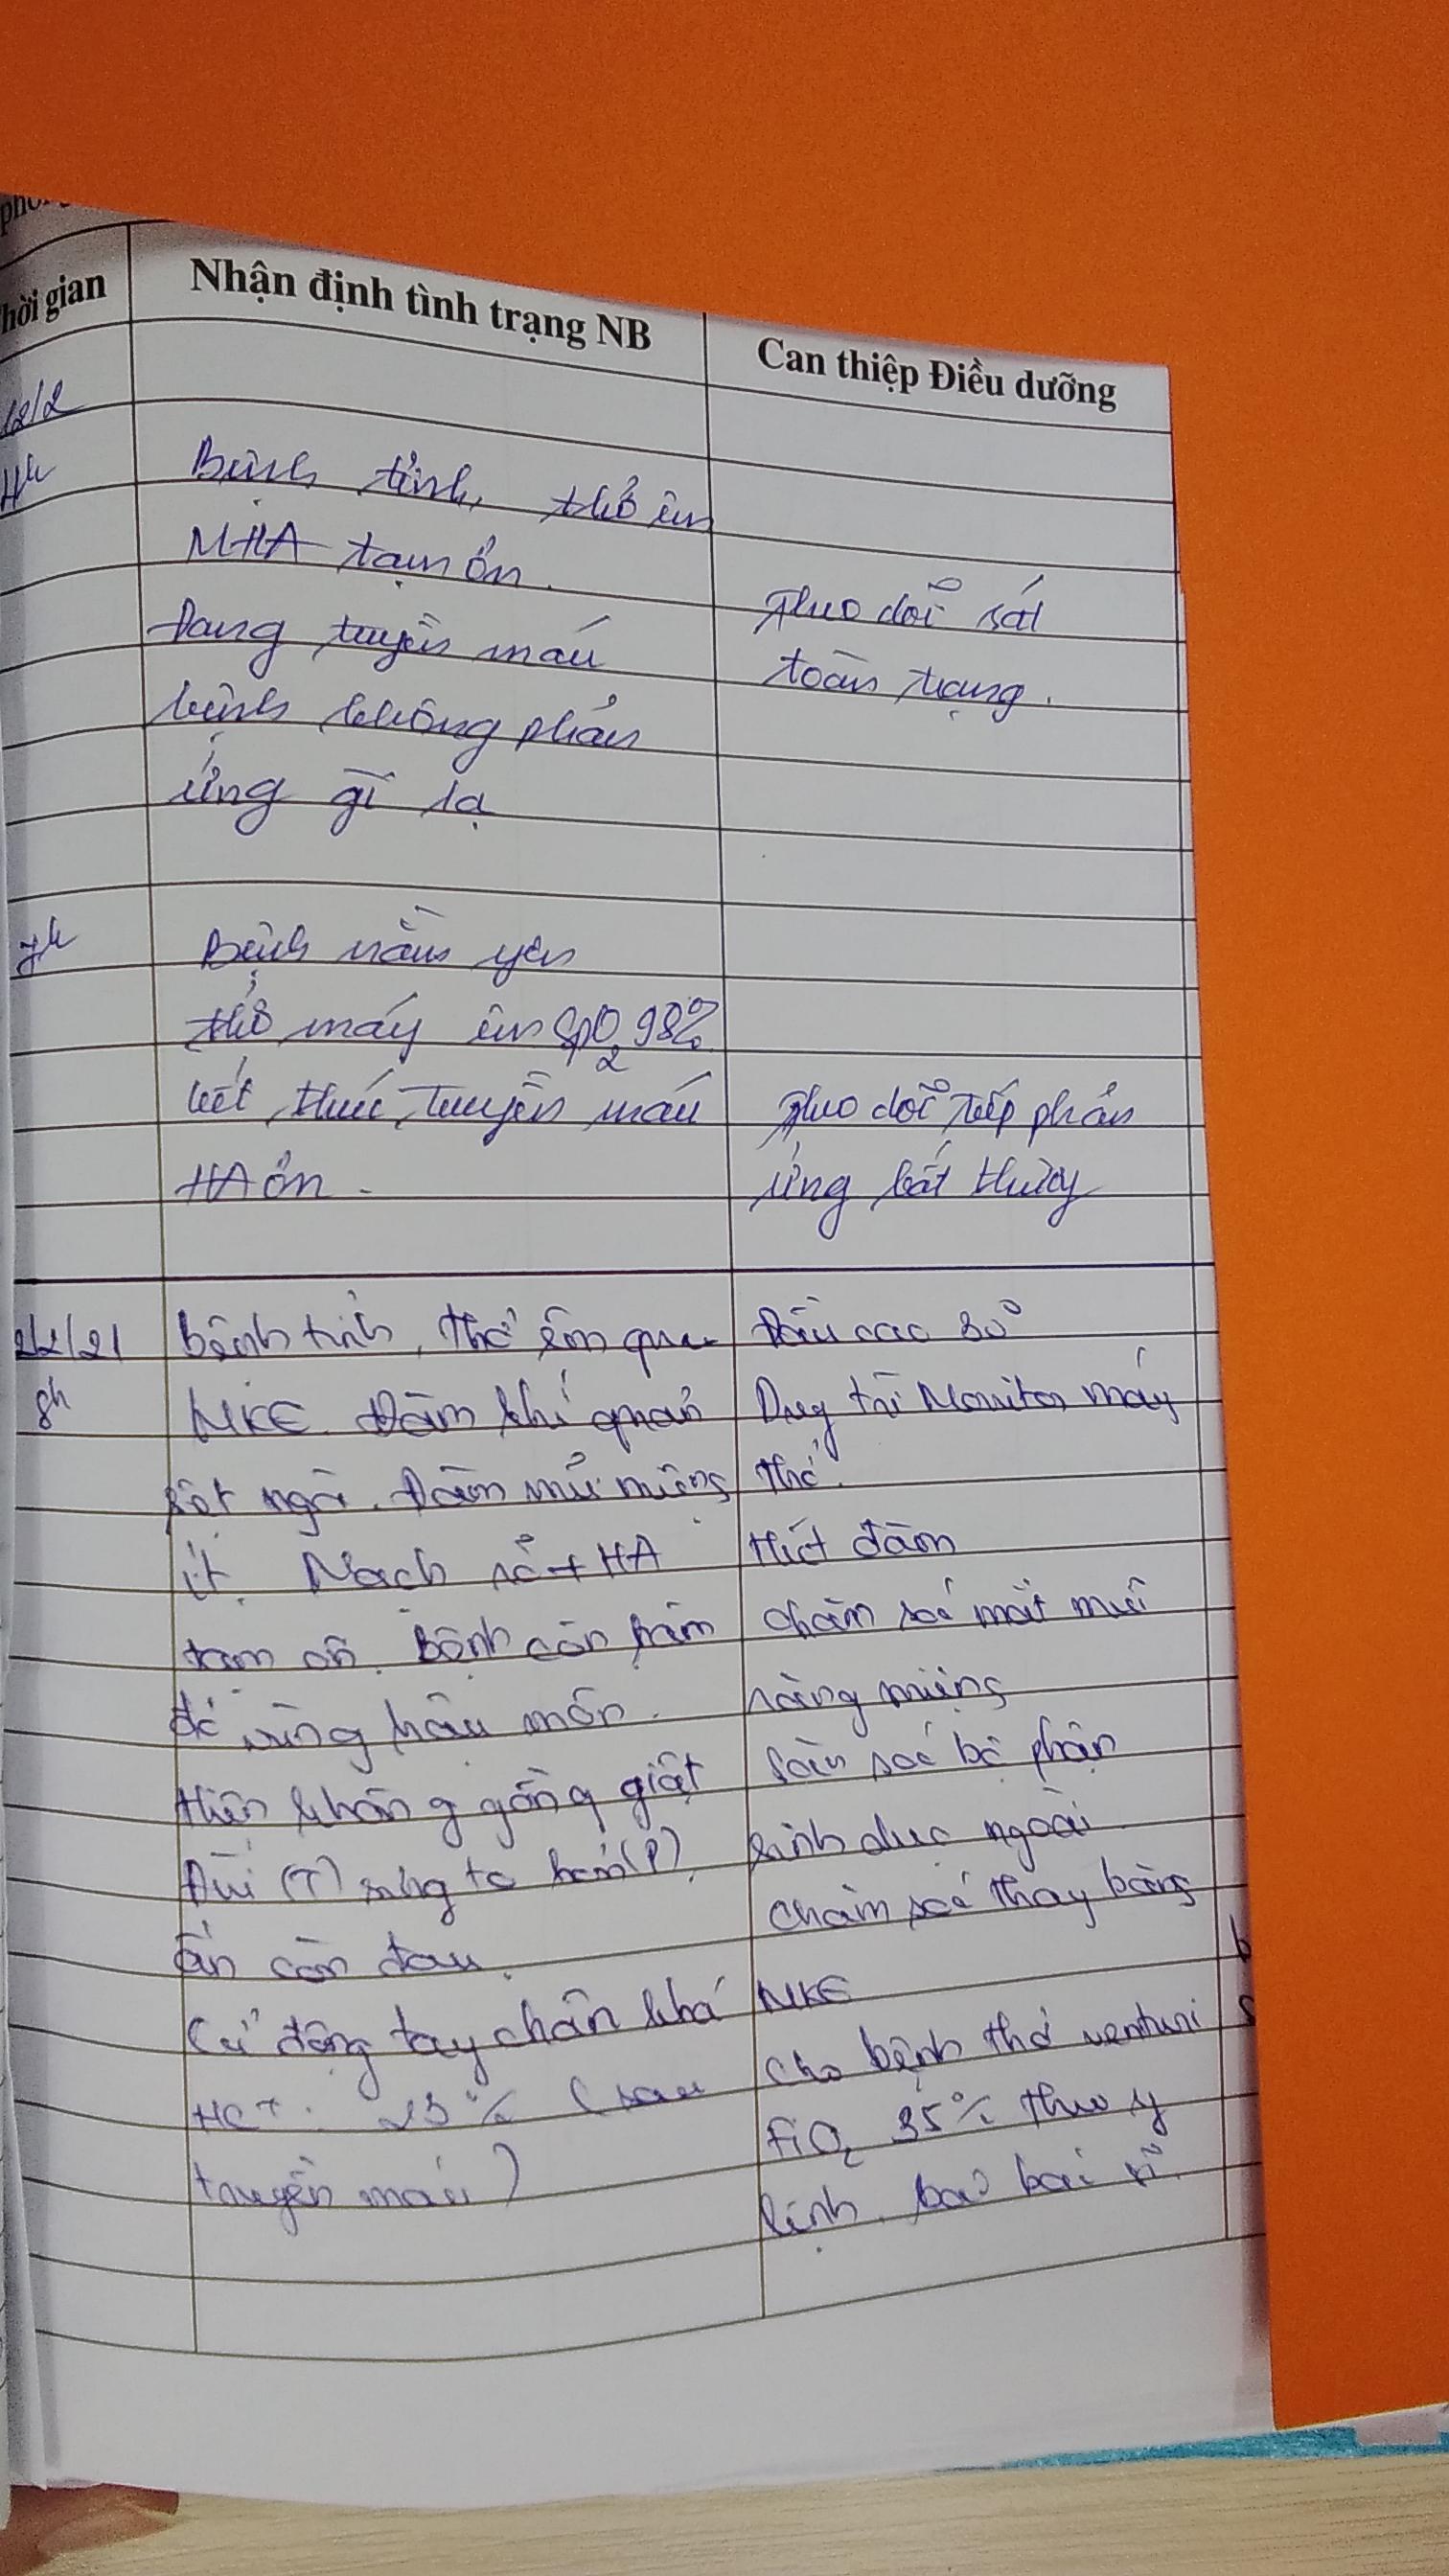 Thời gian
Nhận định tình trạng NB
Can thiệp Điều dưỡng
12/2
Bệnh tỉnh, thở êm
MHA tạm ổn.
Đang truyền máu
bệnh không phản
ứng gì lạ
Theo dõi sát
toàn trạng.
7h
Bệnh nằm yên
thở máy êm SpO2 98%
kết thúc truyền máu
HA ổn.
Theo dõi tiếp phản
ứng bất thường
2/2/21
8h
Bệnh tỉnh, thở êm qua
NKQ. Đàm khí quản
ít. Mạch rõ + HA
tạm ổn. Bệnh còn hăm
đỏ vùng hậu môn.
Hiện không gồng giật
Đùi (T) sưng to hơn (P).
Ấn còn đau.
Cử động tay chân khá
HCT: 23% (sau
truyền máu)
Đầu cao 30°
Duy trì Monitor máy
thở.
Hút đàm
Chăm sóc mắt mũi
răng miệng
Săn sóc bộ phận
sinh dục ngoài
Chăm sóc thay băng
NKQ
Cho bệnh thở venturi
FiO2 35% theo y
lệnh.